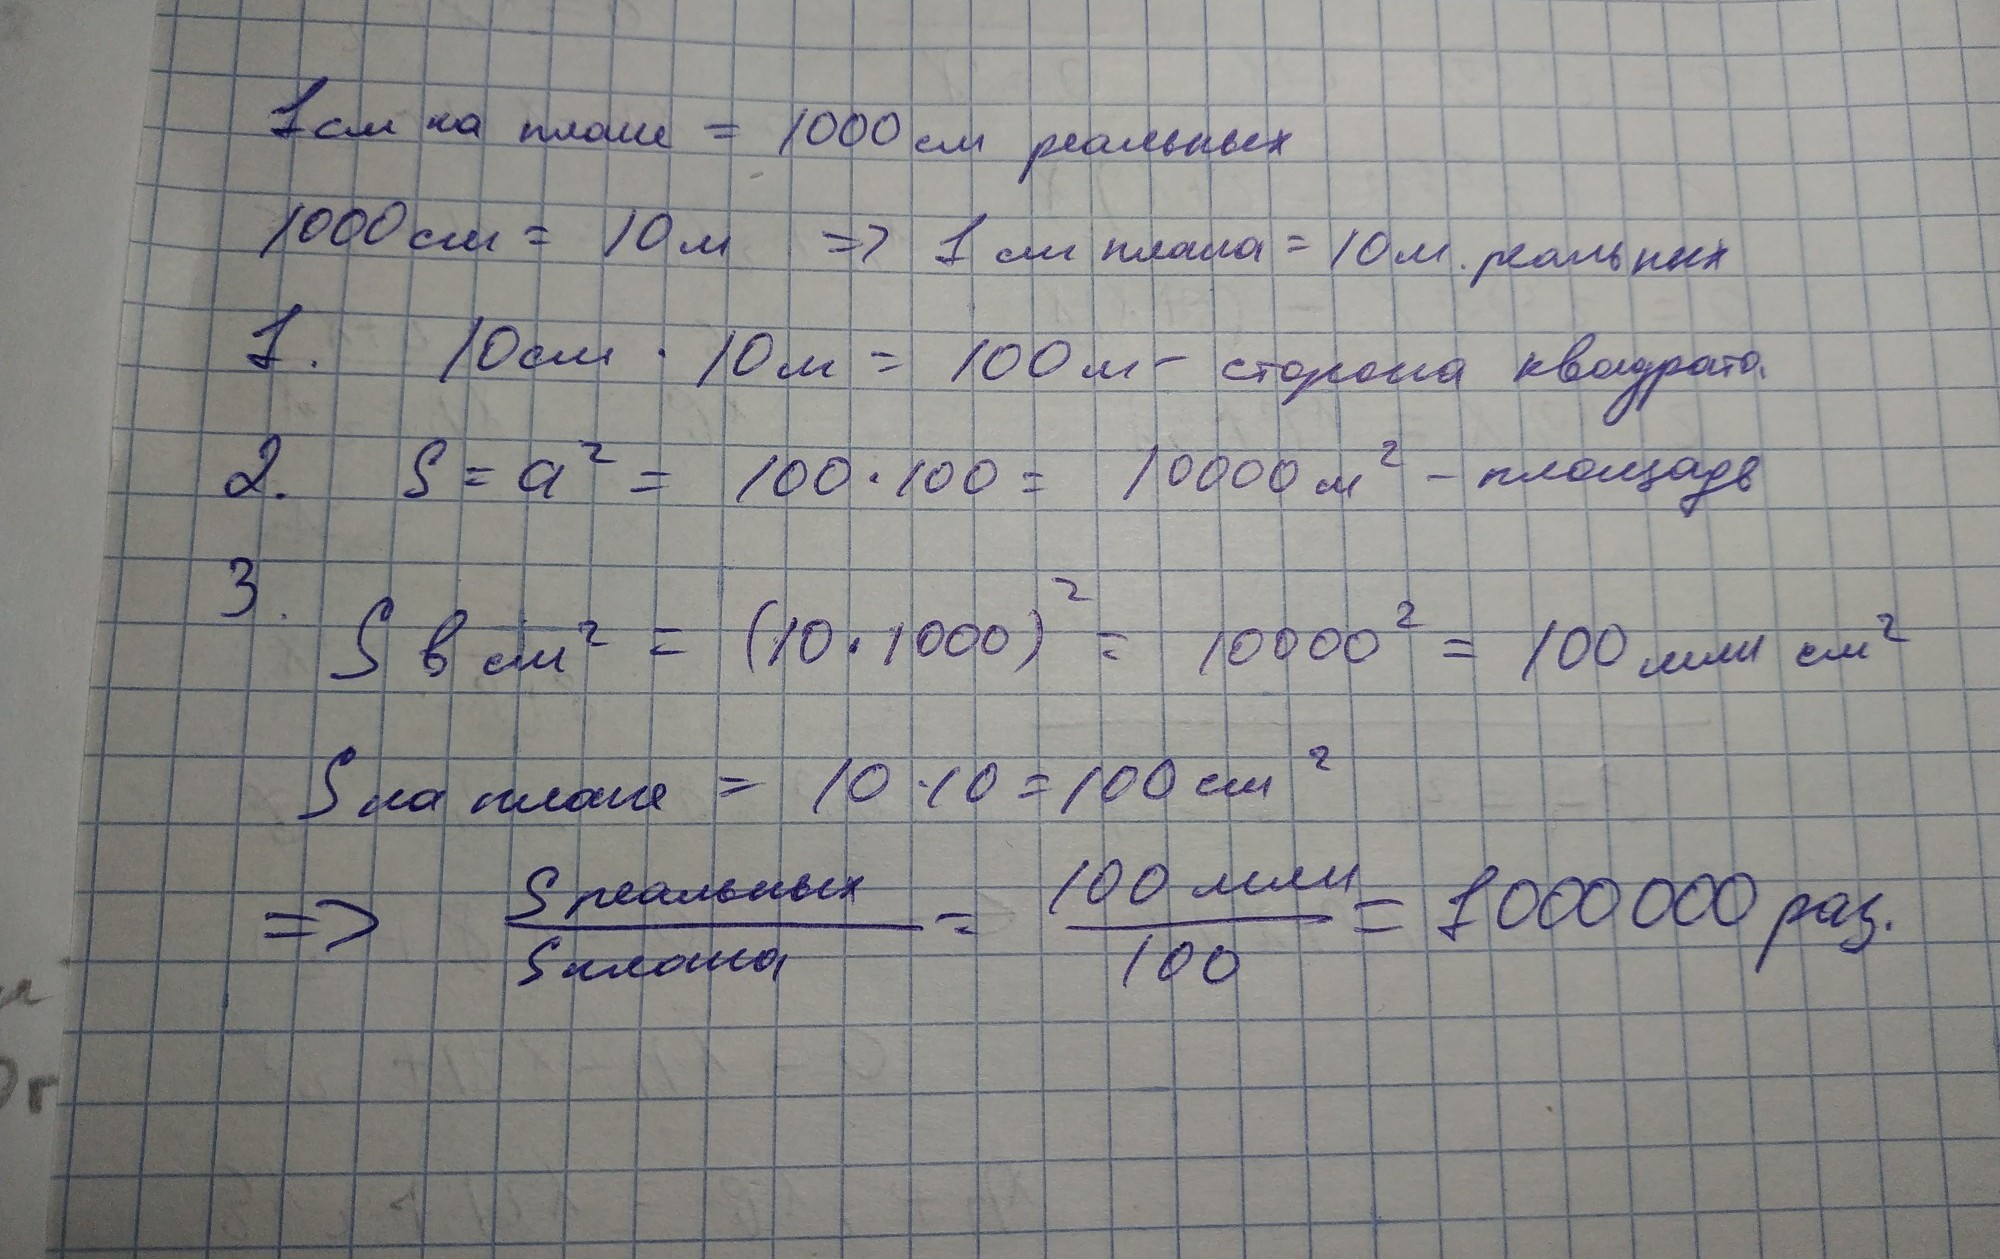 1 см на плане = 1000 см реальных
1000 см = 10 м => 1 см плана = 10 м. реальных
1. 10 см · 10 м = 100 м - сторона квадрата.
2. S = a² = 100 · 100 = 10000 м² - площадь
3.
S в см² = (10 · 1000)² = 10000² = 100 млн см²
S на плане = 10 · 10 = 100 см²
=> S реальных / S плана = 100 млн / 100 = 1000 000 раз.